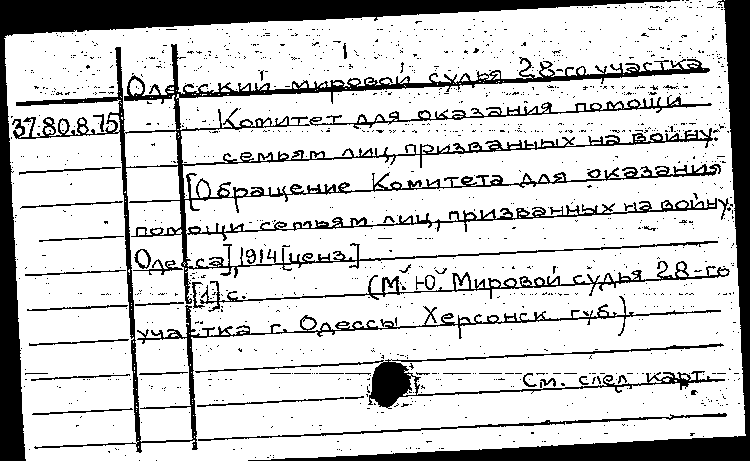 Одесский мировой судья 28-го участка
37.80.8.75
Комитет для оказания помощи
семьям лиц, призванных на войну.
[Обращение Комитета для оказания
помощи семьям лиц, призванных на войну.
Одесса], 1914 [ценз.]
[1] с. (М. Ю. Мировой судья 28-го
участка г. Одессы Херсонск. губ.).
См. след. карт.